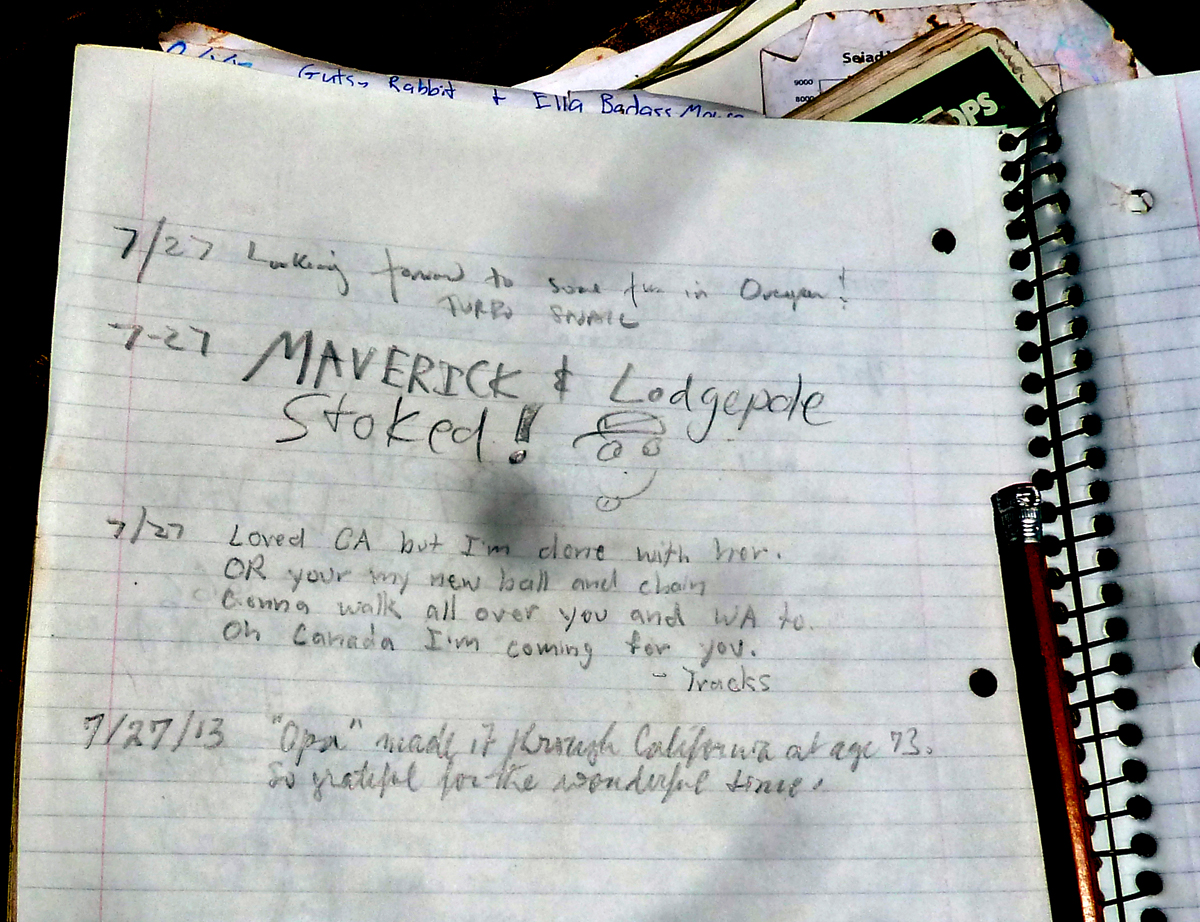 Gutsy Rabbit + Ella Badass Mouse
Seiad
9000
8000
OPS
7/27 Looking forward to some fun in Oregon!
TURBO SNAIL
7-27 MAVERICK & Lodgepole
Stoked!
7/27 Loved CA but I'm done with her.
OR your my new ball and chain
Gonna walk all over you and WA to.
Oh Canada I'm coming for you.
- Tracks
7/27/13 "Opa" made it through California at age 73.
So grateful for the wonderful time!